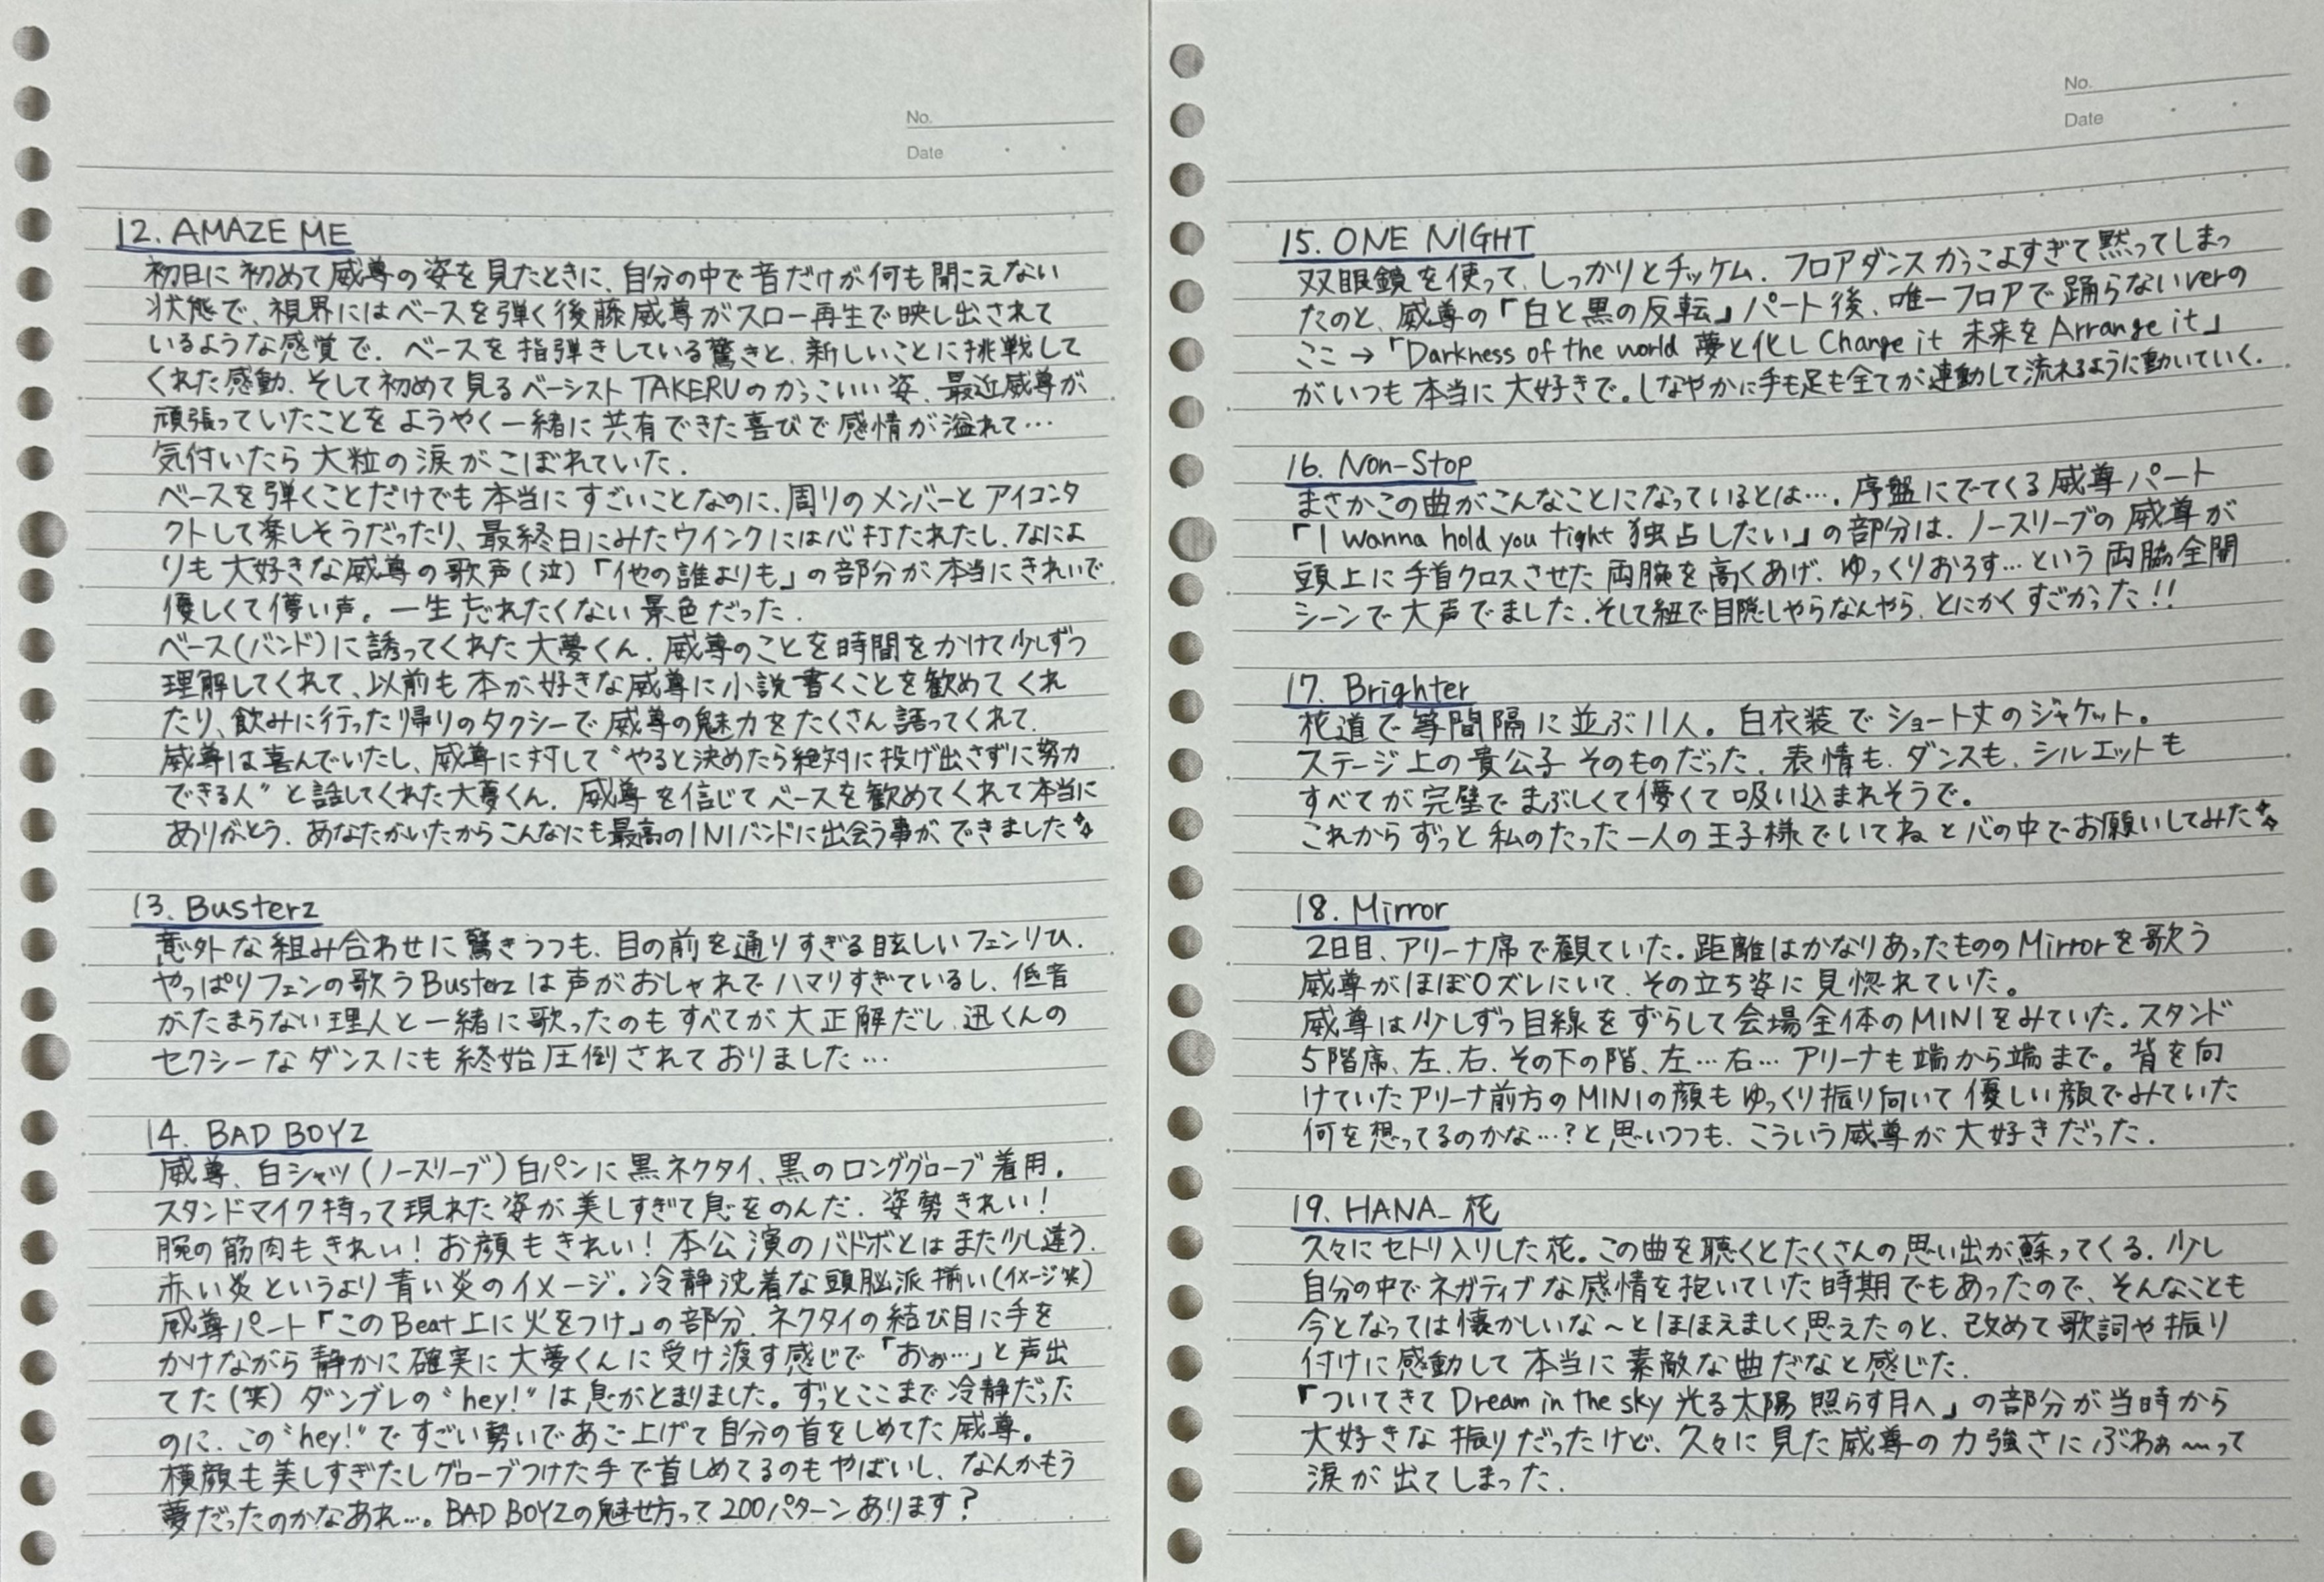 No.
Date
12. AMAZE ME
初日に初めて威尊の姿を見たときに、自分の中で音だけが何も聞こえない
状態で、視界にはベースを弾く後藤威尊がスロー再生で映し出されて
いるような感覚で、ベースを指弾きしている驚きと、新しいことに挑戦して
くれた感動、そして初めて見るベーシスト TAKERUのかっこいい姿、最近威尊が
頑張っていたことをようやく一緒に共有できた喜びで感情が溢れて…
気付いたら大粒の涙がこぼれていた.
ベースを弾くことだけでも本当にすごいことなのに、周りのメンバーとアイコンタ
クトして楽しそうだったり、最終日にみたウインクには心打たれたし、なによ
りも大好きな威尊の歌声(泣)「他の誰よりも」の部分が本当にきれいで
優しくて儚い声。一生忘れたくない景色だった.
ベース(バンド)に誘ってくれた大夢くん、威尊のことを時間をかけて少しずつ
理解してくれて、以前も本が好きな威尊に小説書くことを歓めてくれ
たり、飲みに行った帰りのタクシーで威尊の魅力をたくさん語ってくれて.
威尊は喜んでいたし、威尊に対して“やると決めたら絶対に投げ出さずに努力
できる人”と話してくれた大夢くん、威尊を信じてベースを歓めてくれて本当に
ありがとう、あなたがいたからこんなにも最高のINIバンドに出会う事ができました✨
13. Busterz
意外な組み合わせに驚きつつも、目の前を通りすぎる眩しいフェンりひ.
やっぱりフェンの歌うBusterzは声がおしゃれでハマりすぎているし、低音
がたまらない理人と一緒に歌ったのもすべてが大正解だし、迅くんの
セクシーなダンスにも終始圧倒されておりました…
14. BAD BOYZ
威尊、白シャツ(ノースリーブ)白パンに黒ネクタイ、黒のロンググローブ着用.
スタンドマイク持って現れた姿が美しすぎて息をのんだ. 姿勢きれい!
腕の筋肉もきれい! お顔もきれい! 本公演のバドボとはまた少し違う.
赤い炎というより青い炎のイメージ。冷静沈着な頭脳派揃い(イメージ笑)
威尊パート「このBeat上に火をつけ」の部分、ネクタイの結び目に手を
かけながら静かに確実に大夢くんに受け渡す感じで「おぉ…」と声出
てた(笑) ダンブレの“hey!”は息がとまりました。ずっとここまで冷静だった
のに、この“hey!”ですごい勢いであご上げて自分の首をしめてた威尊。
横顔も美しすぎたしグローブつけた手で首しめてるのもやばいし、なんかもう
夢だったのかなあれ…。BAD BOYZの魅せ方って200パターンあります?
No.
Date
15. ONE NIGHT
双眼鏡を使って、しっかりとチッケム. フロアダンスかっこよすぎて黙ってしまっ
たのと、威尊の「白と黒の反転」パート後、唯一フロアで踊らないverの
ここ→「Darkness of the world 夢と化し Change it 未来を Arrange it」
がいつも本当に大好きで。しなやかに手も足も全てが連動して流れるように動いていく.
16. Non-Stop
まさかこの曲がこんなことになっているとは…. 序盤にでてくる威尊パート
「I wanna hold you tight 独占したい」の部分は、ノースリーブの威尊が
頭上に手首クロスさせた両腕を高くあげ、ゆっくりおろす…という両脇全開
シーンで大声でました.そして紐で目隠しやらなんやら、とにかくすごかった!!
17. Brighter
花道で等間隔に並ぶ11人。白衣装でショート丈のジャケット。
ステージ上の貴公子そのものだった. 表情も、ダンスも、シルエットも
すべてが完璧でまぶしくて儚くて吸い込まれそうで。
これからずっと私のたった一人の王子様でいてねと心の中でお願いしてみた✨
18. Mirror
2日目、アリーナ席で観ていた。距離はかなりあったもののMirrorを歌う
威尊がほぼ0ズレにいて、その立ち姿に見惚れていた。
威尊は少しずつ目線をずらして会場全体のMINIをみていた。スタンド
5階席、左、右、その下の階、左…右… アリーナも端から端まで。背を向
けていたアリーナ前方のMINIの顔もゆっくり振り向いて優しい顔でみていた
何を想ってるのかな…?と思いつつも、こういう威尊が大好きだった.
19. HANA_花
久々にセトリ入りした花。この曲を聴くとたくさんの思い出が蘇ってくる. 少し
自分の中でネガティブな感情を抱いていた時期でもあったので、そんなことも
今となっては懐かしいな～とほほえましく思えたのと、改めて歌詞や振り
付けに感動して本当に素敵な曲だなと感じた.
「ついてきて Dream in the sky 光る太陽 照らす月へ」の部分が当時から
大好きな振りだったけど、久々に見た威尊の力強さにぶわぁ～って
涙が出てしまった.